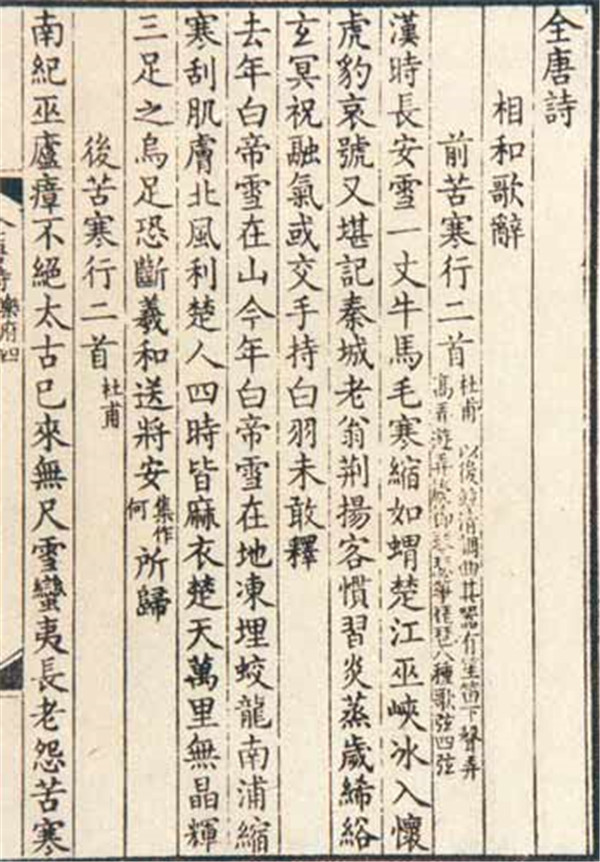 全唐詩
相和歌辭
前苦寒行二首
杜甫 以後 清調曲其器有笙笛下聲弄
高弄遊弄 琴瑟箏琵琶八種歌弦四弦
漢時長安雪一丈牛馬毛寒縮如蝟楚江巫峽冰入懷
虎豹哀號又堪記秦城老翁荊揚客慣習炎蒸歲絺綌
玄冥祝融氣或交手持白羽未敢釋
去年白帝雪在山今年白帝雪在地凍埋蛟龍南浦縮
寒刮肌膚北風利楚人四時皆麻衣楚天萬里無晶輝
三足之烏足恐斷羲和送將安集作何所歸
後苦寒行二首杜甫
南紀巫廬瘴不絕太古已來無尺雪蠻夷長老怨苦寒
樂府四